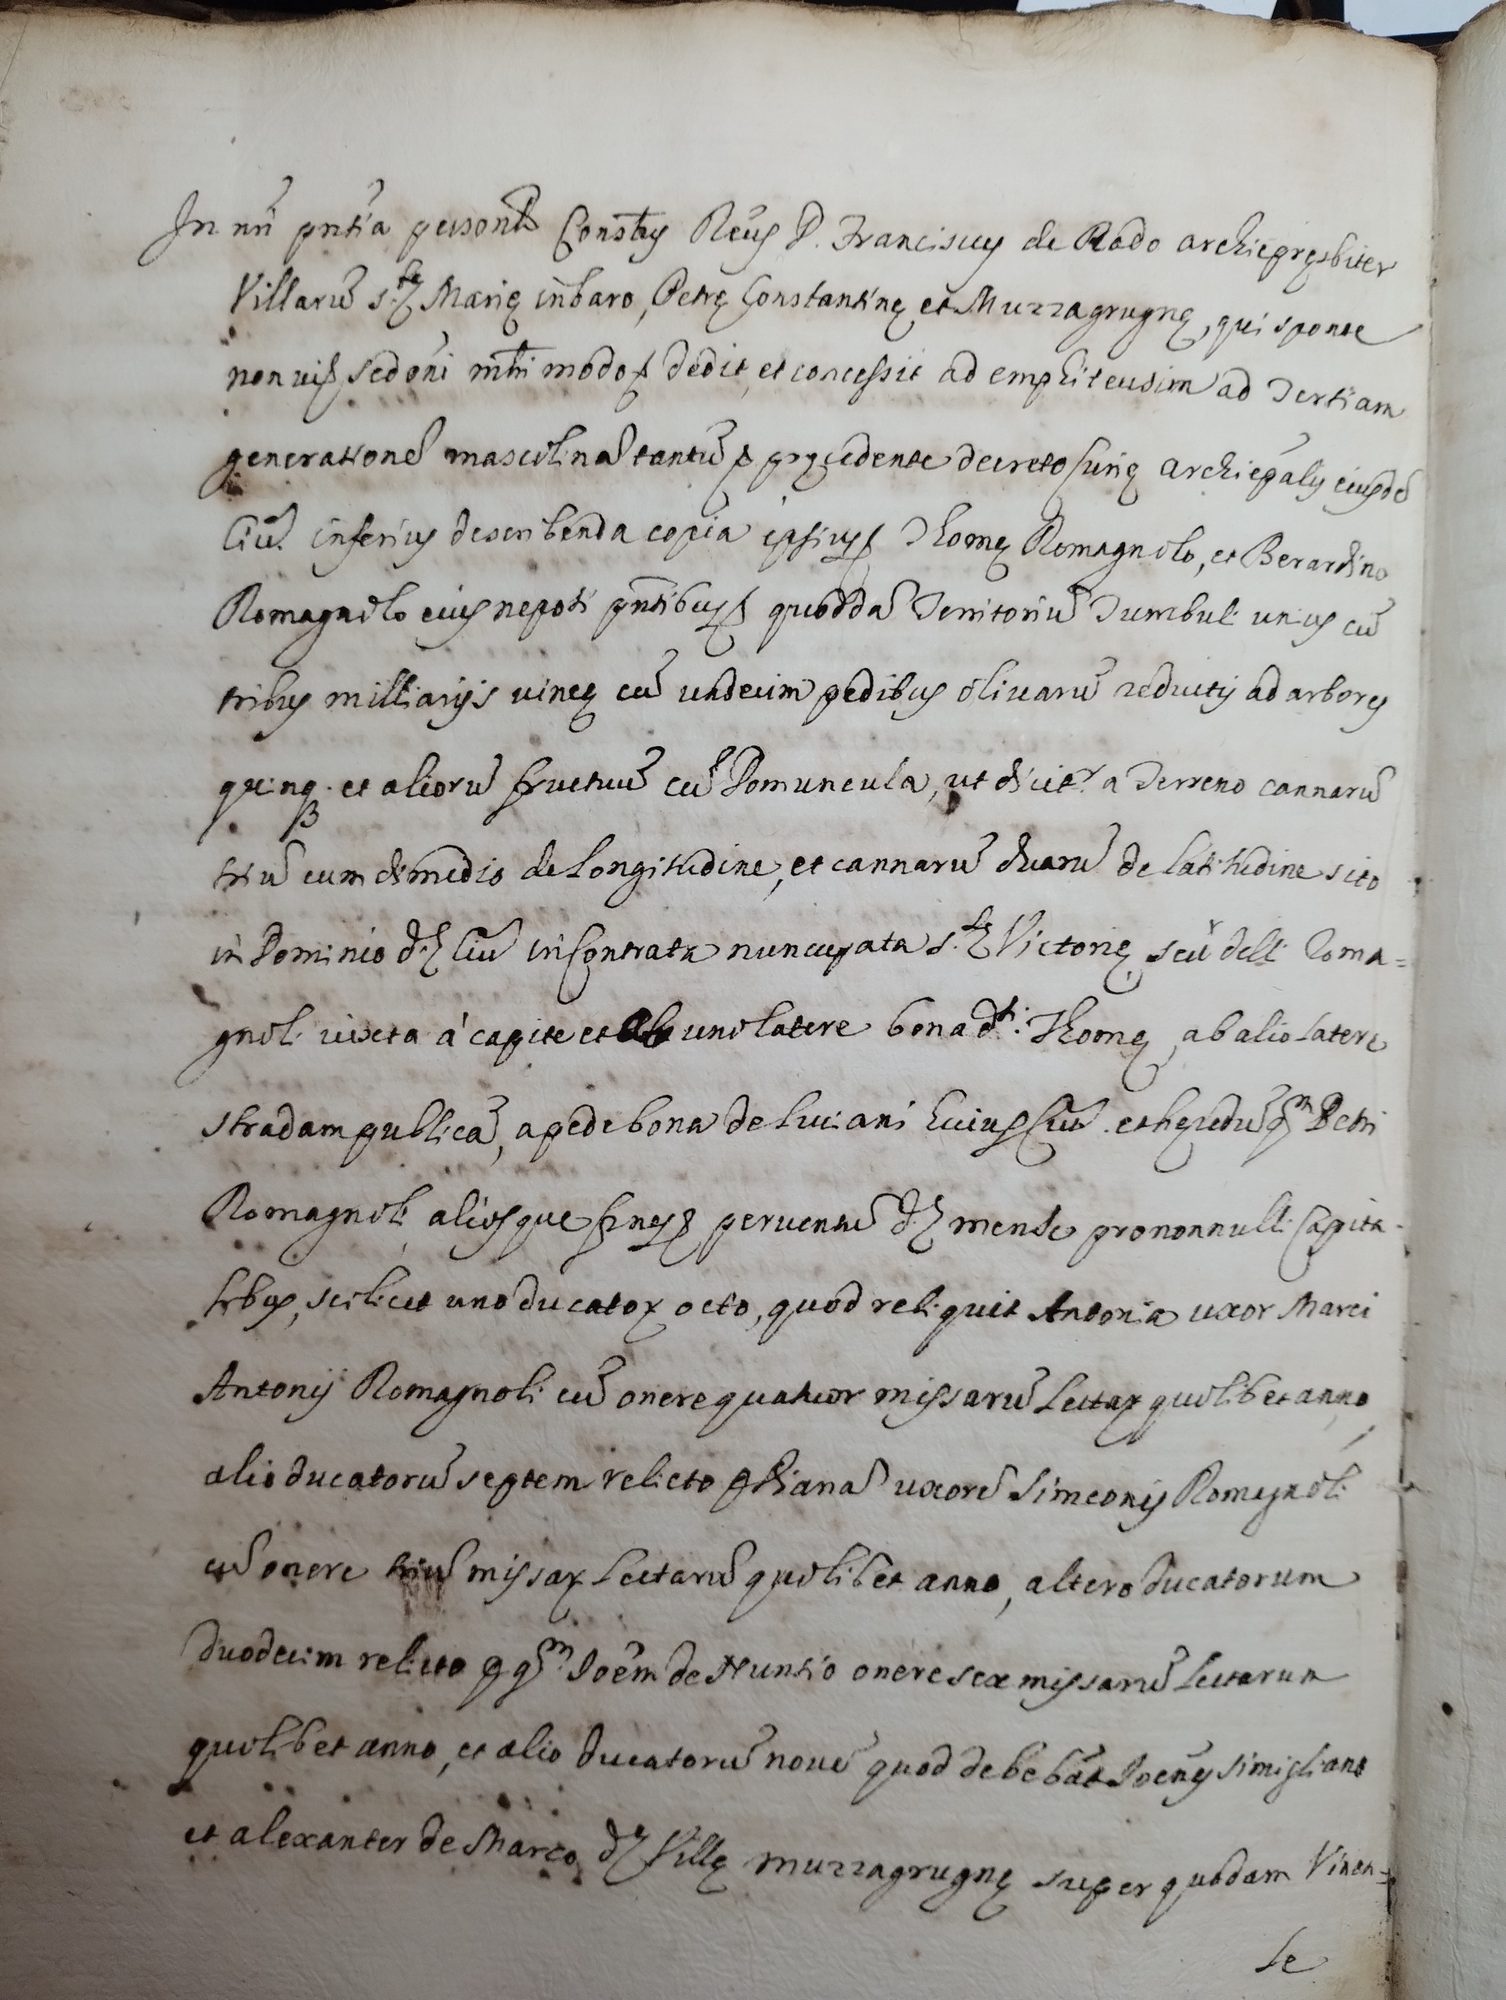 In nr̃i pñtia personl̃r Constũs Reũs D. Franciscus de Rado archiepresbiter
Villarũ s.tę Marię inbaro, Petrę Constantinę et Muzzagrugnę, qui sponte
non vi sed oñi ml̃ri modo dedit, et concessit ad emphiteusim ad Tertiam
generationẽ masculinã tantũ precedente decreto Curię archiep̃alis eiusdẽ
Ciũ. inferius describenda copia ipsius Thomę Romagnolo, et Berardino
Romagnolo eius nepoti pñtibus quoddã Territoriũ Tumbuli unius cũ
tribus milliarijs vineę cũ undecim pedibus olivarũ reductis ad arbores
quinq. et aliorũ fructuũ cũ Domuncula, ut dicit.r a Terreno cannarũ
triũ cum dimedio de longitudine, et cannarũ duarũ de latitudine sito
in Dominio d.ę Ciũ in Contrata nuncupata s.tę Victorię seũ delli Roma=
gnoli iuxta à capite et ab uno latere bona d.ti Thomę, ab alio latere
stradam publicã, a pede bona de Luciani huius Ciũ. et hęredũ qm Petri
Romagnoli aliosque fines perventũ d.ę mense pro nonnulli Capita-
libus, scilicet uno ducator octo, quod reliquit Antonia uxor Marci
Antonij Romagnoli cũ onere quatuor missarũ Lectar quolibet anno,
alio ducatorũ septem relicto p Dianã uxorẽ Simeonis Romagnoli
cũ onere triũ missar Lectarũ quolibet anno, altero ducatorum
duodecim relicto p qm Joẽm de Nuntio onere sex missarũ Lectarum
quolibet anno, et alio ducatorũ novẽ quod debebãt Joẽnes Simigliano
et alexanter de Marco d.ę Villę muzzagrugnę super quodam Vinea=
le